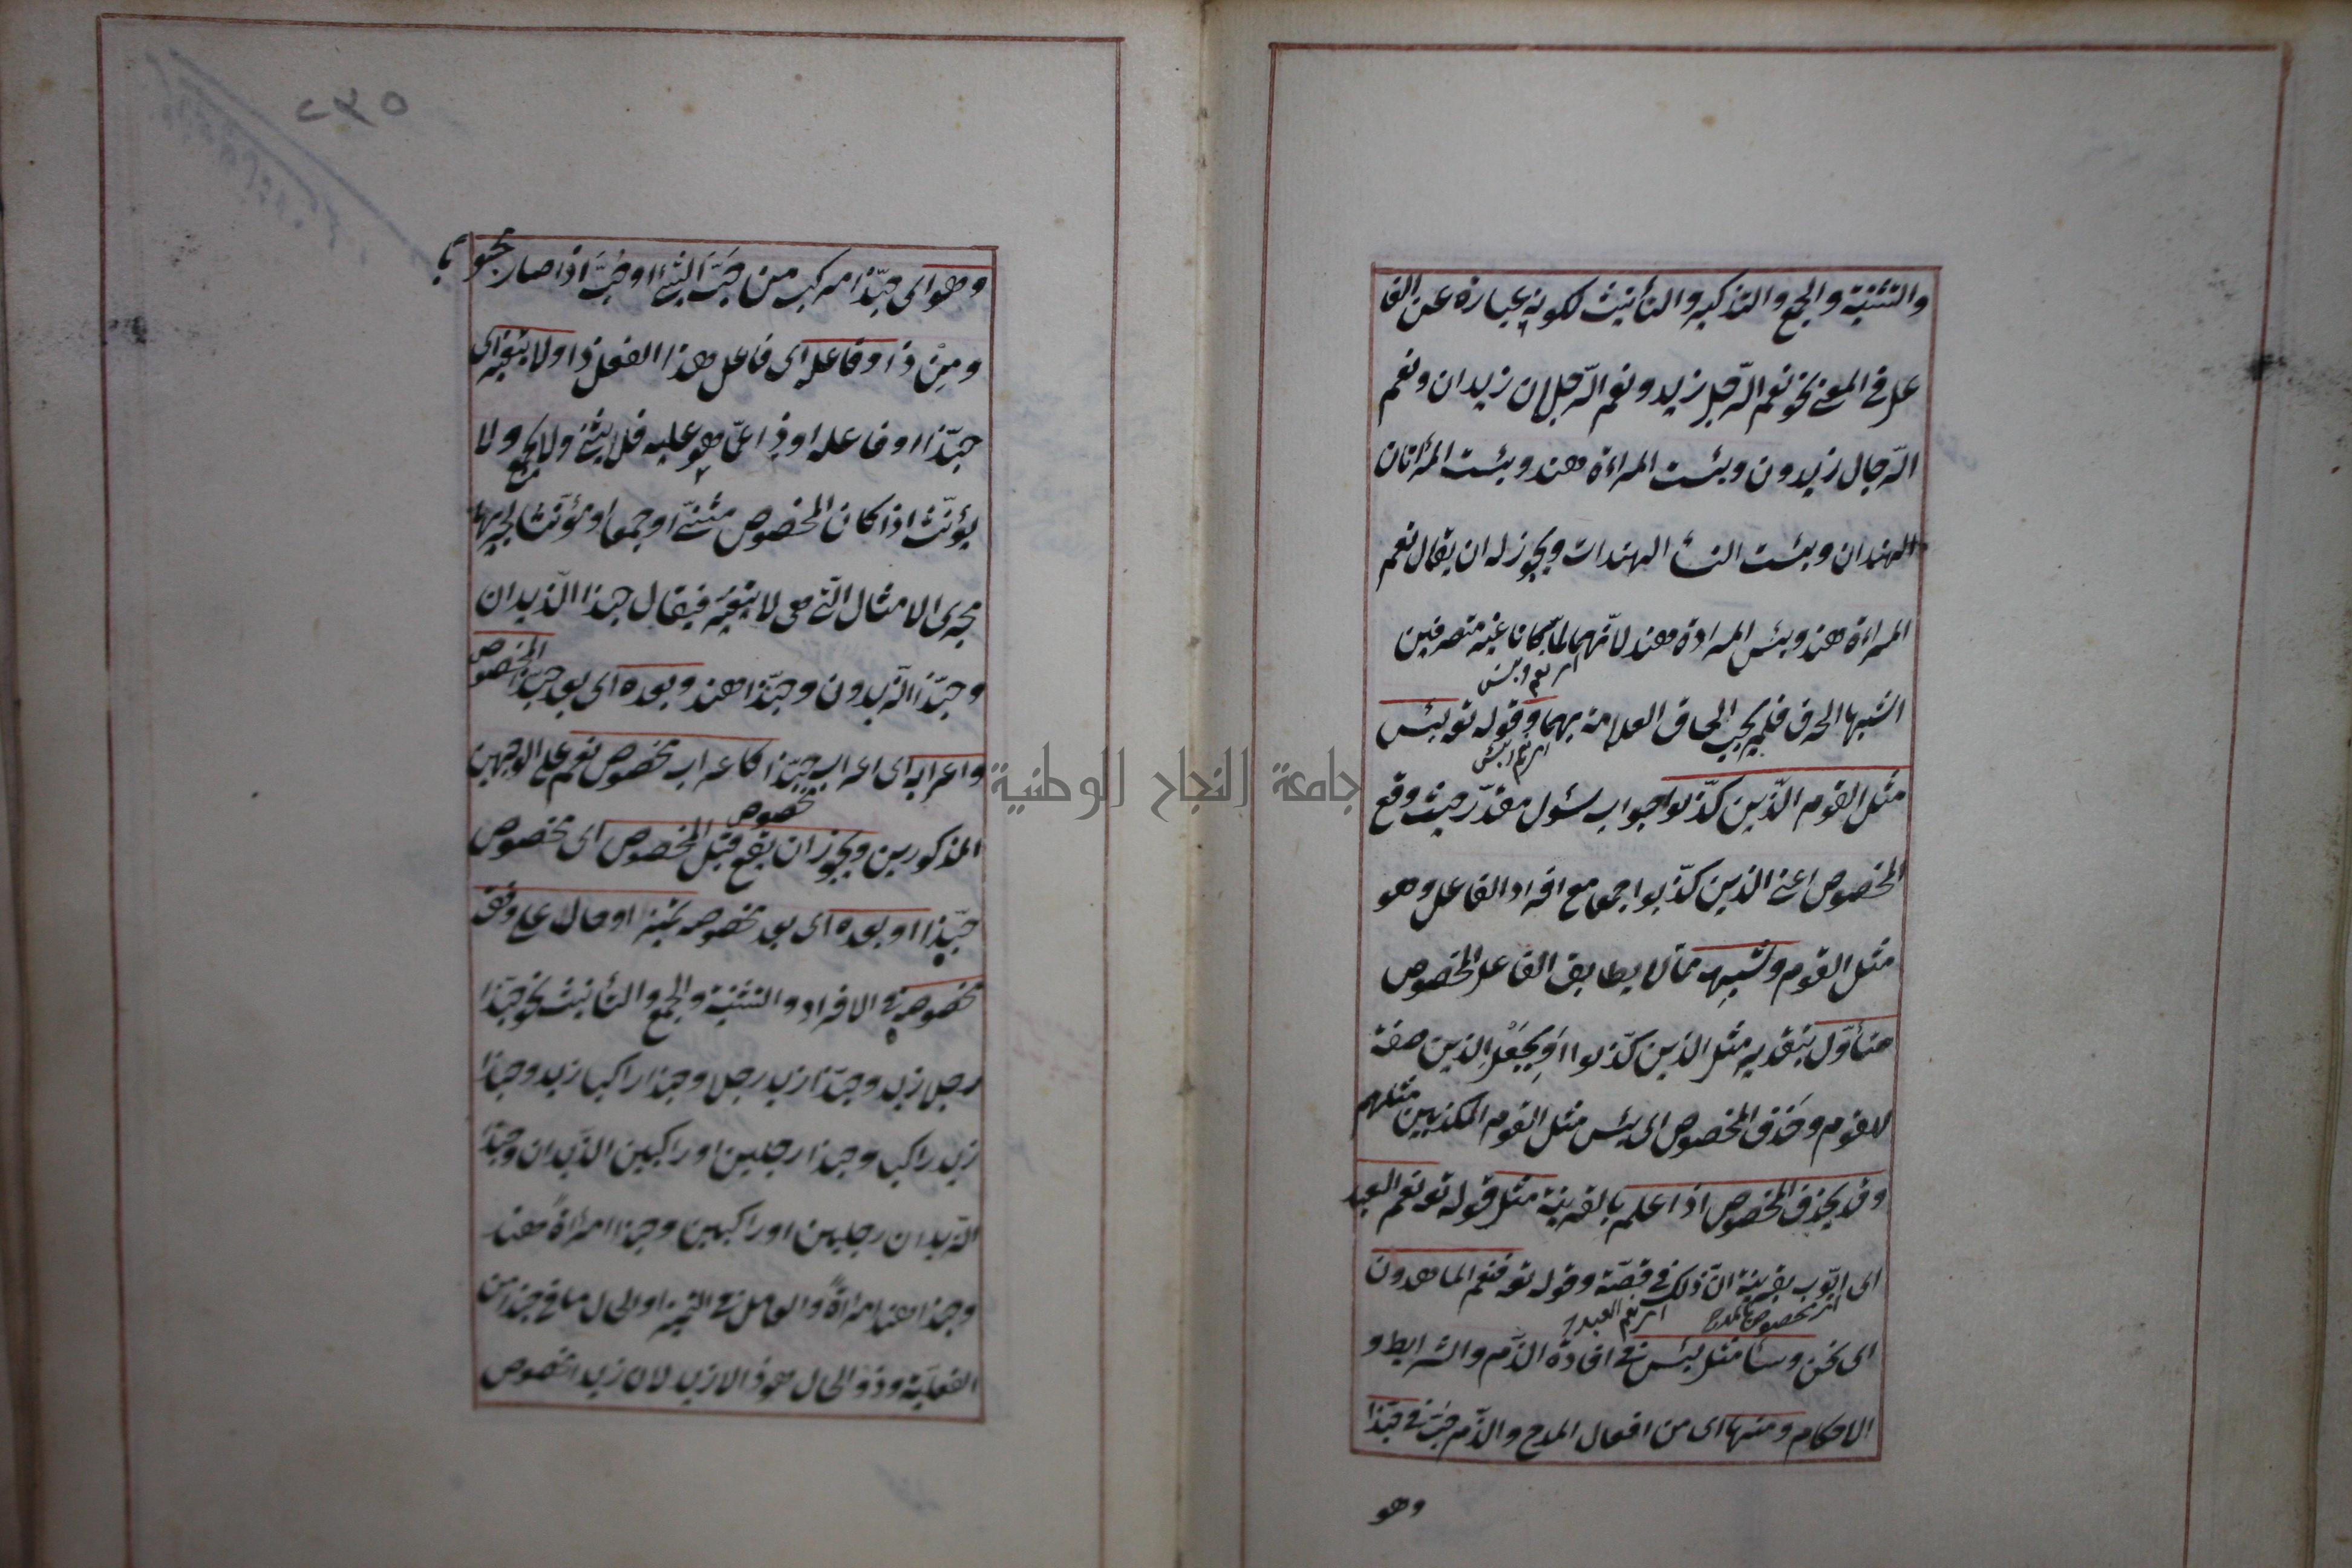 والتثنية والجمع والتذكير والتأنيث لكونه عبارة عن الفا
عل في المعنى نحو نعم الرّجل زيد ونعم الرّجلان زيدان ونعم
الرّجال زيدون وبئست المراءة هند وبئست المرأتان
الهندان وبئست النساء الهندات ويجوز له ان يقال نعم
المراءة هند وبئس المراءة هند لانّهما لمّا كانا غير متصرفين
اى نعم وبئس
اشبها الحرف فلم يجب الحاق العلامة بهما وقوله تع بئس
اى نعم وبئس
مثل القوم الّذين كذّبوا جواب سئول مقدّر حيث وقع
المخصوص اعنى الذين كذّبوا جمعا مع افراد الفاعل وهو
مثل القوم وشبهه ممّا لا يطابق الفاعل المخصوص
متأوّل بتقدير مثل الذين كذّبوا او يجعل الذين صفة
للقوم وحذف المخصوص اى بئس مثل القوم المكذبين مثلهم
وقد يحذف المخصوص اذا علم بالقرينة مثل قوله تع نعم العبد
اى ايّوب بقرينة انّ ذلك في قصّته وقوله تع فنعم الماهدون
اى مخصوص بالمدح
اى نعم العبد
اى نحن وساء مثل بئس في افادة الذّم والشرايط و
الاحكام ومنها اى من افعال المدح والذّم حبّ في حبّذا
وهو
٢٤٥
وهو اى حبّذا مركب من حَبَّ الشئ او حُبَّ اذا صار محبوبا
ومِنْ ذا وفاعله اى فاعل هذا الفعل ذا ولا يتغير اى
حبّذا او فاعله او ذا عمّا هو عليه فلا يثنى ولا يجمع ولا
يؤنّث اذا كان المخصوص مثنّى او جمعا او مؤنّثا لجريها
مجرى الامثال الّتى هى لا يتغير فيقال حبذا الزّيدان
وحبّذا الزّيدون وحبّذا هند وبعده اى بعد حبّذا المخصوص
واعرابه اى اعراب حبّذا كاعراب مخصوص نعم على الوجهين
مخصوص
المذكورين ويجوز ان يقع قبل المخصوص اى مخصوص
حبّذا او بعده اى بعد مخصوصه تمييز او حال على وفق
مخصوصه في الافراد والتثنية والجمع والتأنيث نحو حبّذا
رجل زيد وحبّذا زيد رجل وحبذا راكبا زيد وحبذا
زيد راكب وحبذا رجلين او راكبين الزّيدان وحبّذا
الزّيدان رجلين او راكبين وحبذا امرأةً هند
وحبذا هند امرأةً والعامل في التمييز او الحال ما في حبذا من
الفعليّة وذو الحال هو ذا لا زيد لان زيد المخصوص
جامعة النجاح الوطنية